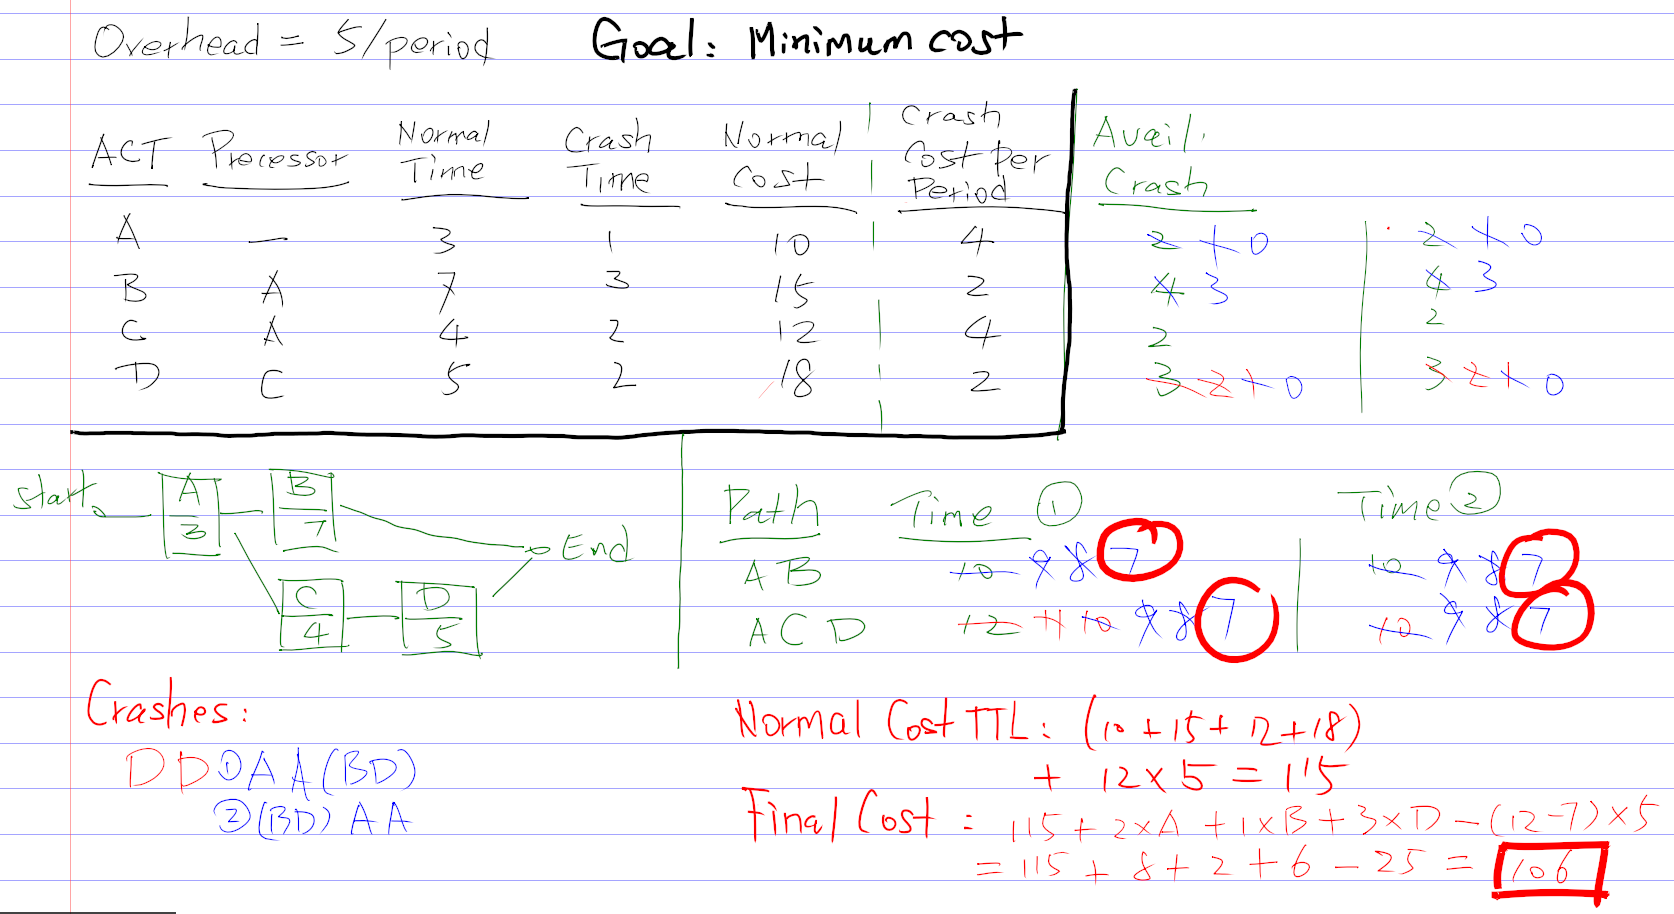 Overhead = 5/period Goal: Minimum cost
ACT Processor Normal Time Crash Time Normal Cost Crash Cost per Period Avail. Crash
A — 3 1 10 4 2 1 0 2 1 0
B A 7 3 15 2 4 3 4 3
C A 4 2 12 4 2 2
D C 5 2 18 2 3 2 1 0 3 2 1 0
Start A 3 B 7 End
C 4 D 5
Path Time ① Time ②
AB 10 9 8 7 10 9 8 7
ACD 12 11 10 9 8 7 10 9 8 7
Crashes:
D D ① A A (BD)
② (BD) A A
Normal Cost TTL: (10 + 15 + 12 + 18)
+ 12 × 5 = 115
Final Cost = 115 + 2×A + 1×B + 3×D - (12-7) × 5
= 115 + 8 + 2 + 6 - 25 = 106